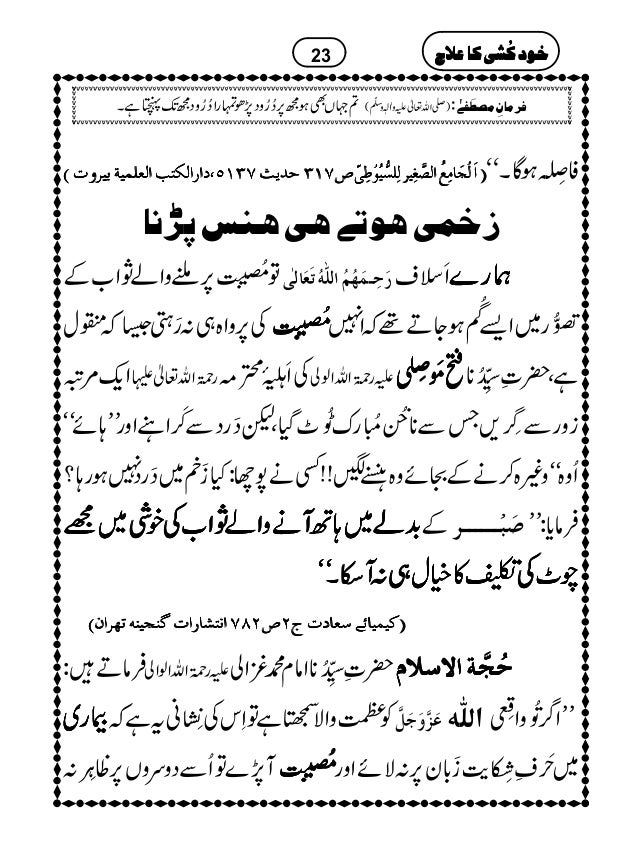 خود کُشی کا علاج
23
فرمانِ مصطَفٰے : (صلی اللہ تعالیٰ علیہ واٰلہٖ وسلّم) تم جہاں بھی ہو مجھ پر دُرُود پڑھو تمہارا دُرُود مجھ تک پہنچتا ہے۔
فاصِلہ ہوگا۔‘‘ (اَلْجامِعُ الصَّغِیر لِلسُّیُوْطِیّ ص۳۱۷ حدیث ۵۱۳۷، دارالکتب العلمیة بیروت)
زخمی ہوتے ہی ہنس پڑنا
ہمارے اَسلاف رَحِمَهُمُ اللهُ تَعَالٰی تو مُصیبت پر ملنے والے ثواب کے
تصوُّر میں ایسے گُم ہو جاتے تھے کہ انہیں مُصیبت کی پرواہ ہی نہ رَہتی جیسا کہ منقول
ہے، حضرتِ سیِّدُنا فتح مَوصِلی علیہ رحمۃ اللہ الولی کی اَہلیۂ محترمہ رحمۃ اللہ تعالیٰ علیہا ایک مرتبہ
زور سے گِریں جس سے ناخُن مُبارک ٹُوٹ گیا، لیکن دَرد سے کَراہنے اور ’’ہائے‘‘
اُوہ‘‘ وغیرہ کرنے کے بجائے وہ ہنسنے لگیں!! کسی نے پوچھا: کیا زَخْم میں دَرد نہیں ہو رہا؟
فرمایا: ’’صَبْر کے بدلے میں ہاتھ آنے والے ثواب کی خوشی میں مجھے
چوٹ کی تکلیف کا خیال ہی نہ آسکا۔‘‘
(کیمیائے سعادت ج۲ ص۷۸۲ انتشارات گنجینه تهران)
حُجَّة الاسلام حضرتِ سیِّدُنا امام محمد غزالی علیہ رحمۃ اللہ الوالی فرماتے ہیں:
’’اگر تُو واقِعی اللہ عَزَّوَجَلَّ کو عظمت والا سمجھتا ہے تو اِس کی نِشانی یہ ہے کہ بیماری
میں حَرفِ شِکایت زَبان پر نہ لائے اور مُصیبت آپڑے تو اُسے دوسروں پر ظاہِر نہ